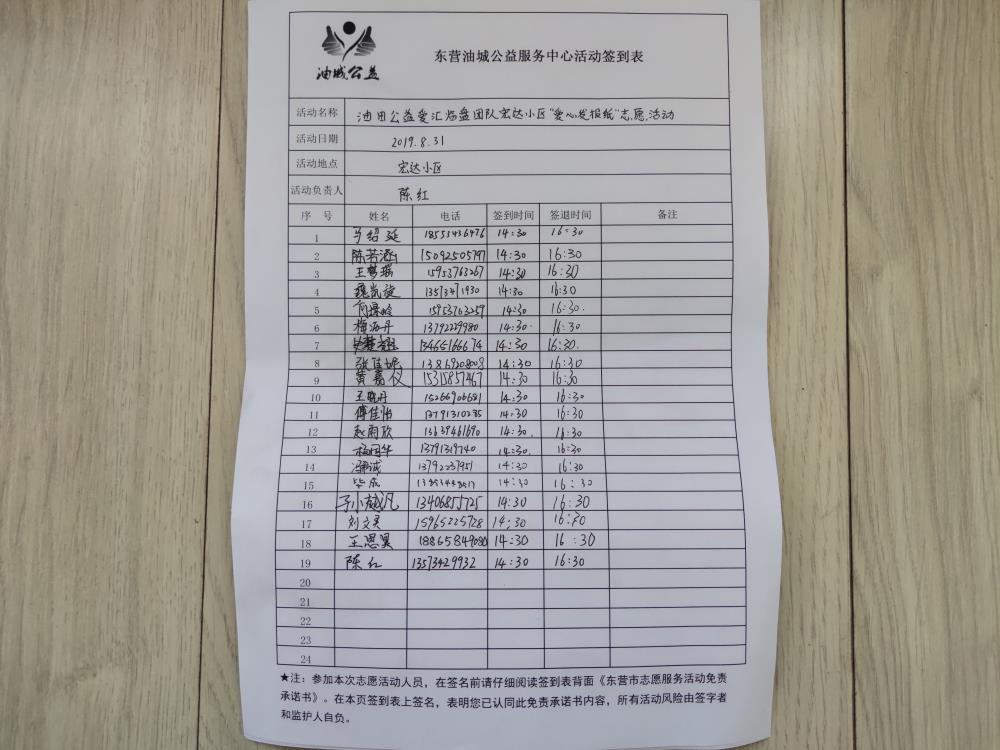 油城公益
东营油城公益服务中心活动签到表
活动名称 油田公益爱汇 团队宏达小区“爱心发报纸”志愿活动
活动日期 2019.8.31
活动地点 宏达小区
活动负责人 陈红
序 号 姓名 电话 签到时间 签退时间 备注
1 马绍延 18553436476 14:30 16:30
2 陈若涵 15092505797 14:30 16:30
3 王梦瑶 15953763267 14:30 16:30
4 魏凯旋 13573471930 14:30 16:30
5 15953763259 14:30 16:30.
6 13792229980 14:30. 16:30
7 13465166674 14:30 16:30.
8 张佳妮 13869208008 14:30 16:30
9 黄嘉仪 15315857467 14:30 16:30
10 王晓丹 15266906681 14:30 16:30
11 傅佳怡 14:30 16:30
12 赵雨欣 13639461690 14:30. 16:30
13 杨国华 13791319740 14:30. 16:30
14 13792237951 14:30 16:30
15 14:30 16:30
16 于小越凡 13406855725 14:30 16:30
17 刘文灵 15965225728 14:30 16:30
18 王思昊 18865849080 14:30 16:30
19 陈红 13573429932 14:30 16:30
20
21
22
23
24
★注：参加本次志愿活动人员，在签名前请仔细阅读签到表背面《东营市志愿服务活动免责
承诺书》。在本页签到表上签名，表明您已认同此免责承诺书内容，所有活动风险由签字者
和监护人自负。